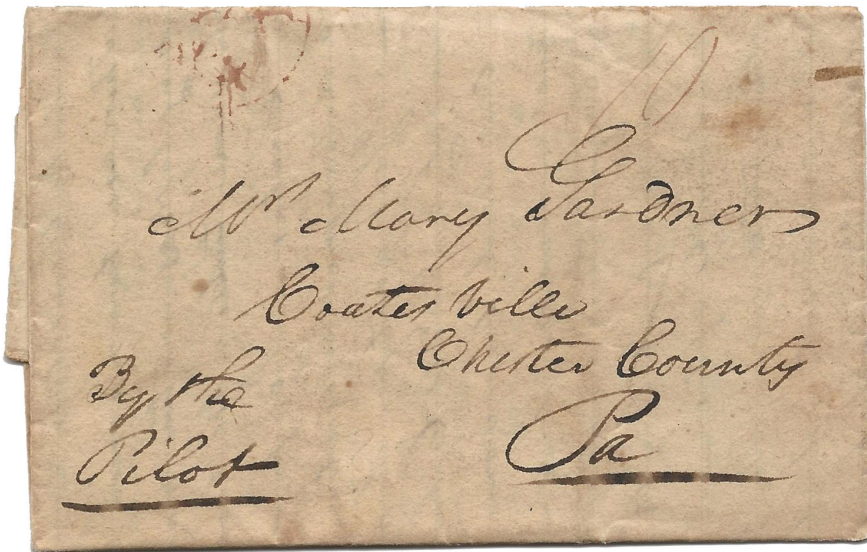 10
Mrs Mary Gardner
Coatesville
Chester County
Pa
By the
Pilot